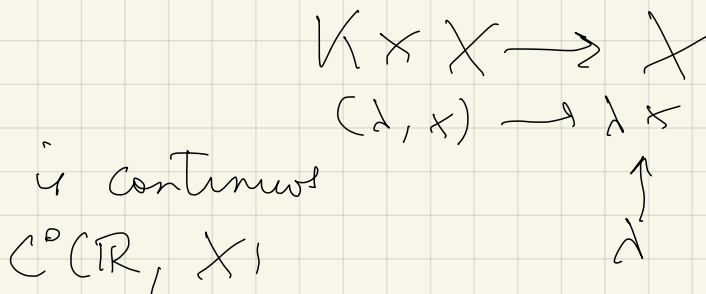 K × X → X
(λ, x) → λ x
is continuous
λ
C⁰(ℝ, X)